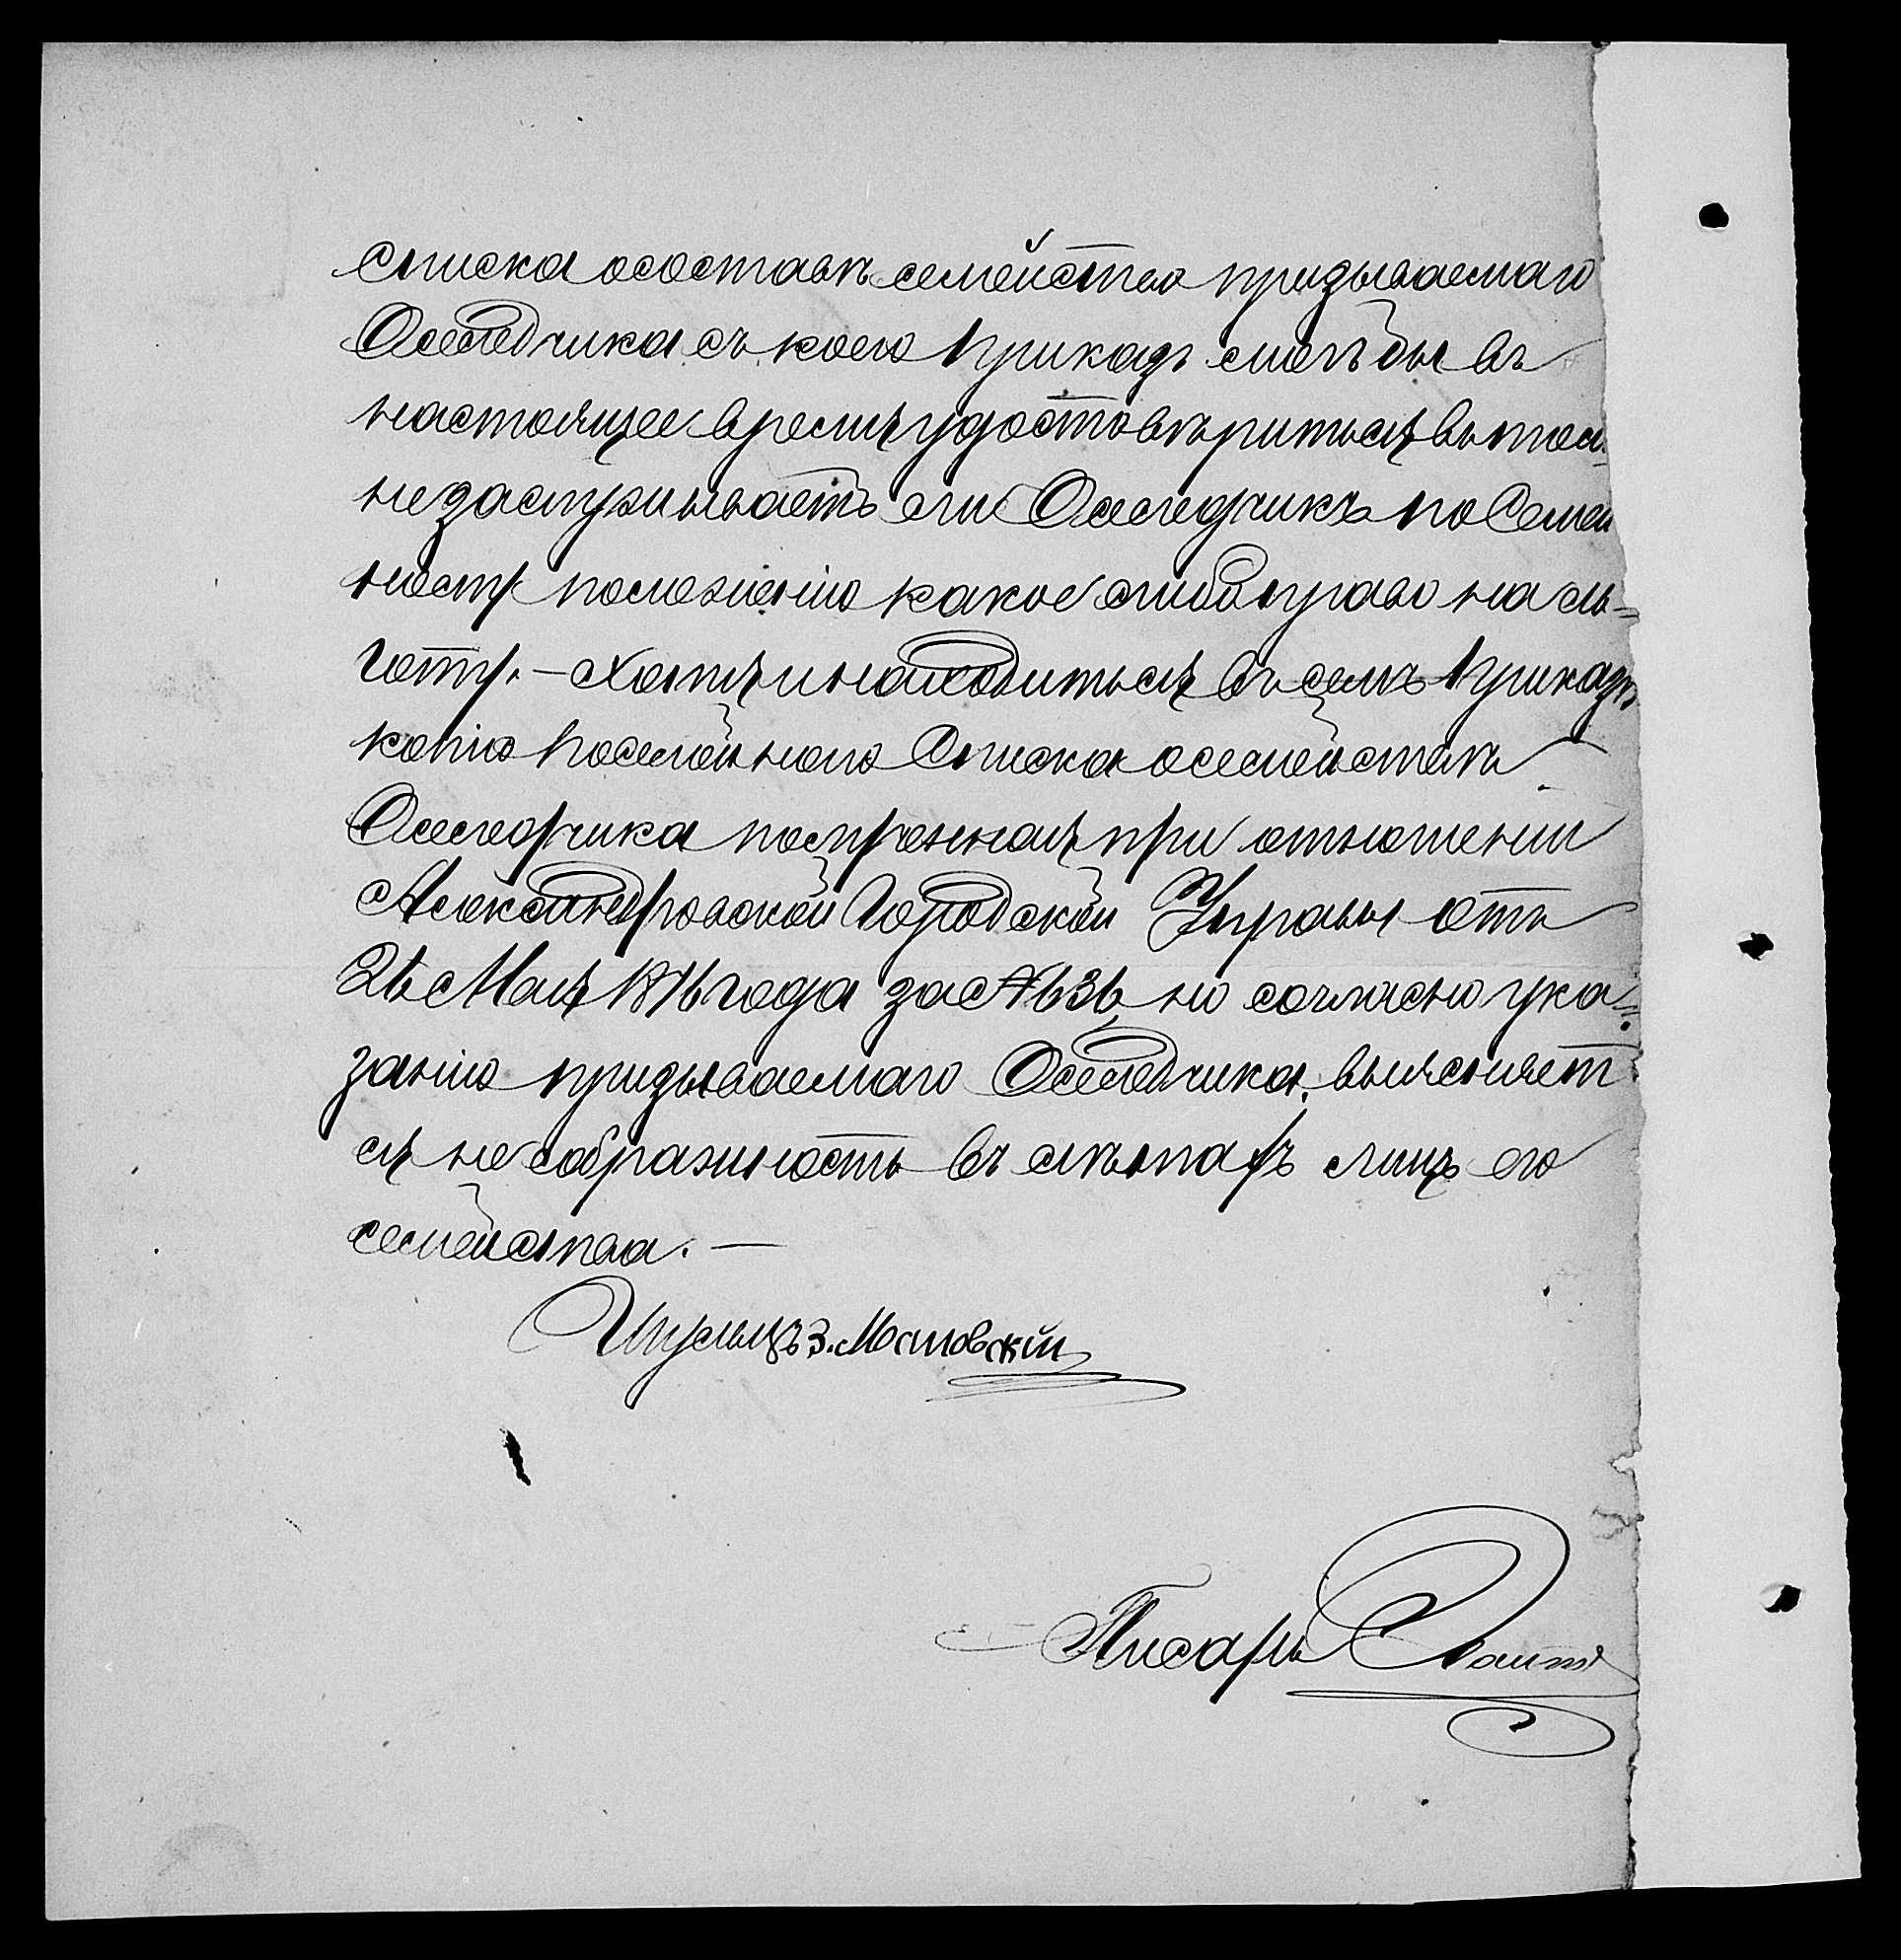 списка осоставѣ семейства призываемаго
Оселедчика съ коего приказъ смогъ бы въ
настоящее время удостовѣриться вътом
незаслуживаетъ ли Оселедчикъ по Семей
ному положению какое либо право на ль-
готу. — Хотя и находиться въ семъ приказѣ
копія посемейного Списка осемействѣ
Оселедчика полученная при отношеніи
Александровской Городской Управы отъ
26 Мая 1876 года за № 636, но согласно ука-
занію призываемаго Оселедчика, выясняет
ся несобразность въ лѣтахъ лицъ его
семейства. —
З. Маловскій
Писарь